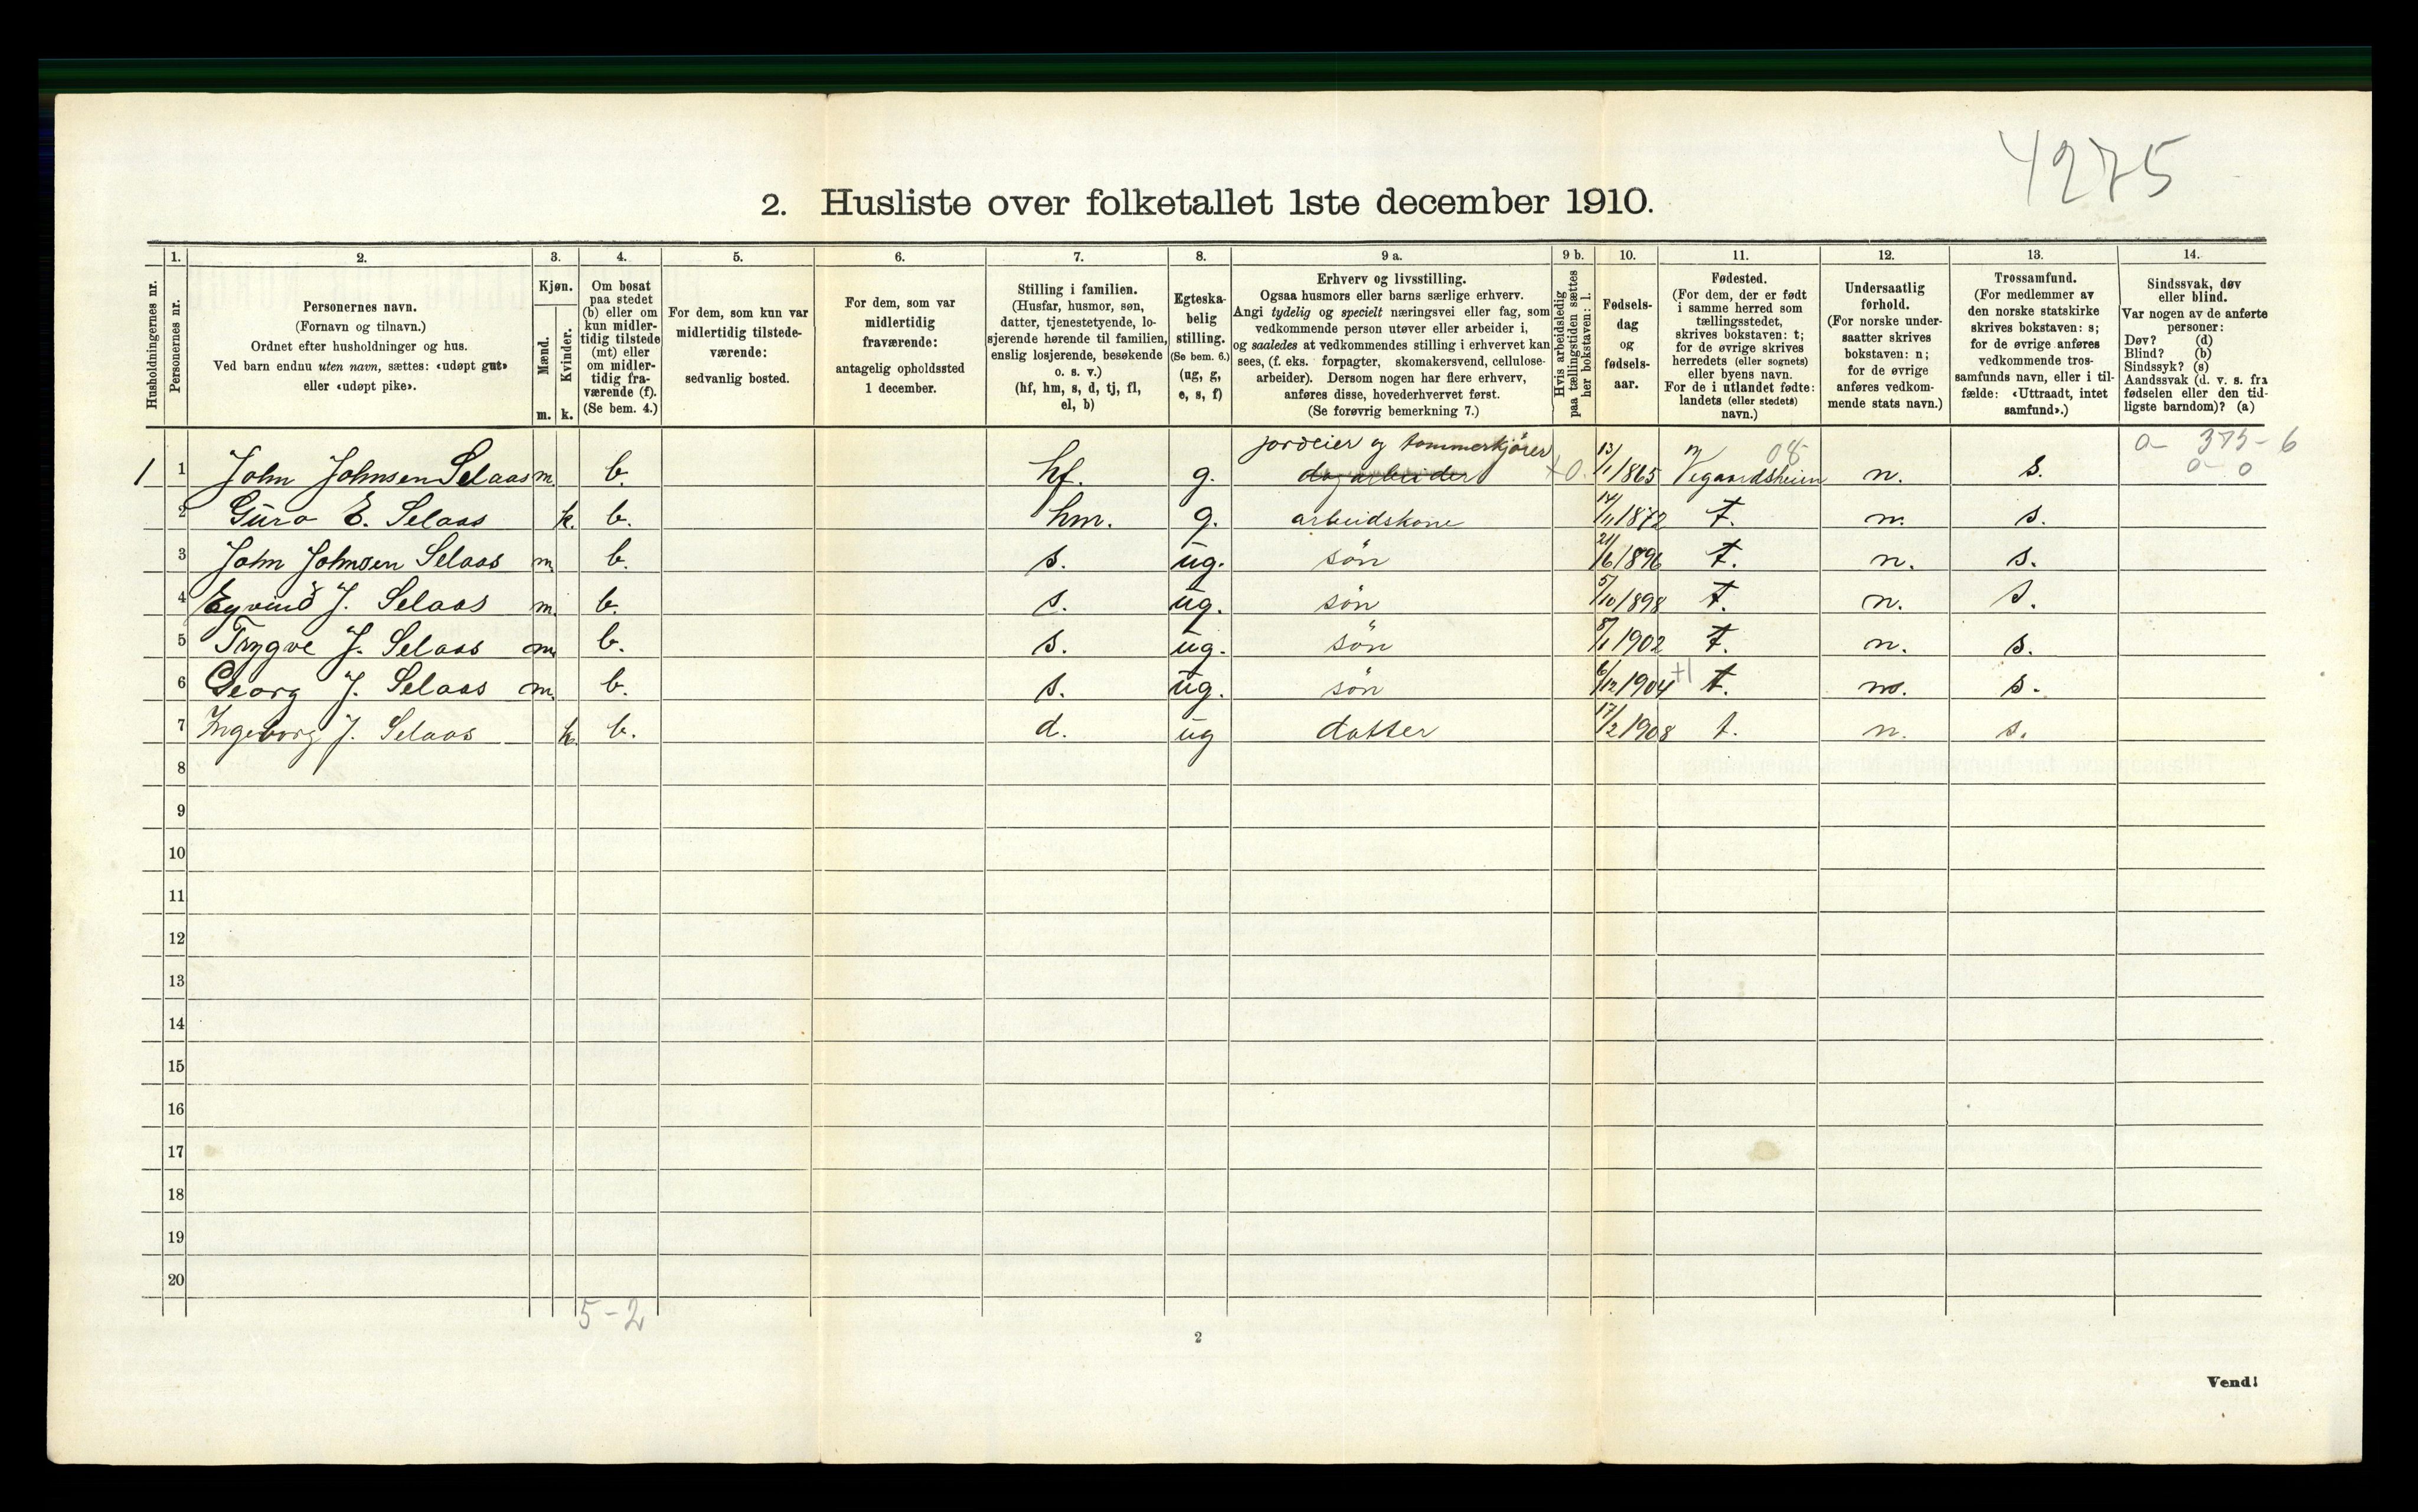 4275
2. Husliste over folketallet 1ste december 1910.
Husholdningernes nr.
1.
Personernes nr.
2.
Personernes navn.
(Fornavn og tilnavn.)
Ordnet efter husholdninger og hus.
Ved barn endnu uten navn, sættes: «udøpt gut»
eller «udøpt pike».
3.
Kjøn.
Mænd.
Kvinder.
m. k.
4.
Om bosat
paa stedet
(b) eller om
kun midler-
tidig tilstede
(mt) eller
om midler-
tidig fra-
værende (f).
(Se bem. 4.)
5.
For dem, som kun var
midlertidig tilstede-
værende:
sedvanlig bosted.
6.
For dem, som var
midlertidig
fraværende:
antagelig opholdssted
1 december.
7.
Stilling i familien.
(Husfar, husmor, søn,
datter, tjenestetyende, lo-
sjerende hørende til familien,
enslig losjerende, besøkende
o. s. v.)
(hf, hm, s, d, tj, fl,
el, b)
8.
Egteska-
belig
stilling.
(Se bem. 6.)
(ug, g,
e, s, f)
9 a.
Erhverv og livsstilling.
Ogsaa husmors eller barns særlige erhverv.
Angi tydelig og specielt næringsvei eller fag, som
vedkommende person utøver eller arbeider i,
og saaledes at vedkommendes stilling i erhvervet kan
sees, (f. eks. forpagter, skomakersvend, cellulose-
arbeider). Dersom nogen har flere erhverv,
anføres disse, hovederhvervet først.
(Se forøvrig bemerkning 7.)
9 b.
Hvis arbeidsledig
paa tællingstiden sættes
her bokstaven: l.
10.
Fødsels-
dag
og
fødsels-
aar.
11.
Fødested.
(For dem, der er født
i samme herred som
tællingsstedet,
skrives bokstaven: t;
for de øvrige skrives
herredets (eller sognets)
eller byens navn.
For de i utlandet fødte:
landets (eller stedets)
navn.)
12.
Undersaatlig
forhold.
(For norske under-
saatter skrives
bokstaven: n;
for de øvrige
anføres vedkom-
mende stats navn.)
13.
Trossamfund.
(For medlemmer av
den norske statskirke
skrives bokstaven: s;
for de øvrige anføres
vedkommende tros-
samfunds navn, eller i til-
fælde: «Uttraadt, intet
samfund».)
14.
Sindssvak, døv
eller blind.
Var nogen av de anførte
personer:
Døv? (d)
Blind? (b)
Sindssyk? (s)
Aandssvak (d. v. s. fra
fødselen eller den tid-
ligste barndom)? (a)
jordeier og tømmerkjører 08 0- 375-6
1 1 John Johnsen Selaas m. b. hf. g. dagarbeider +0. 13/1 1865 Vegaardsheien n. s. 0-0
2 Guro E. Selaas k. b. hm. g. arbeidskone 14/11 1872 t. n. s.
3 John Johnsen Selaas m. b. s. ug. søn 21/6 1896 t. n. s.
4 Eyvind J. Selaas m. b. s. ug. søn 5/10 1898 t. n. s.
5 Trygve J. Selaas m. b. s. ug. søn 8/1 1902 t. n. s.
6 Georg J. Selaas m. b. s. ug. søn 6/12 1904 +1 t. n. s.
7 Ingeborg J. Selaas k. b. d. ug datter 17/2 1908 t. n. s.
8
9
10
11
12
13
14
15
16
17
18
19
20
5-2
2
Vend!